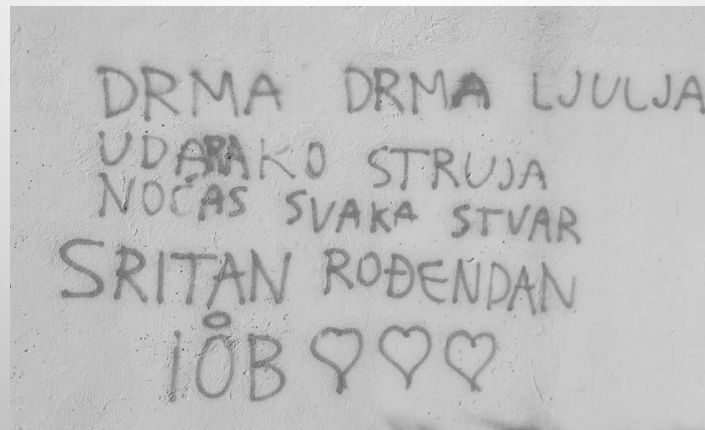 DRMA DRMA LJULJA
UDARA KO STRUJA
NOĆAS SVAKA STVAR
SRITAN ROĐENDAN
IOB ♡♡♡